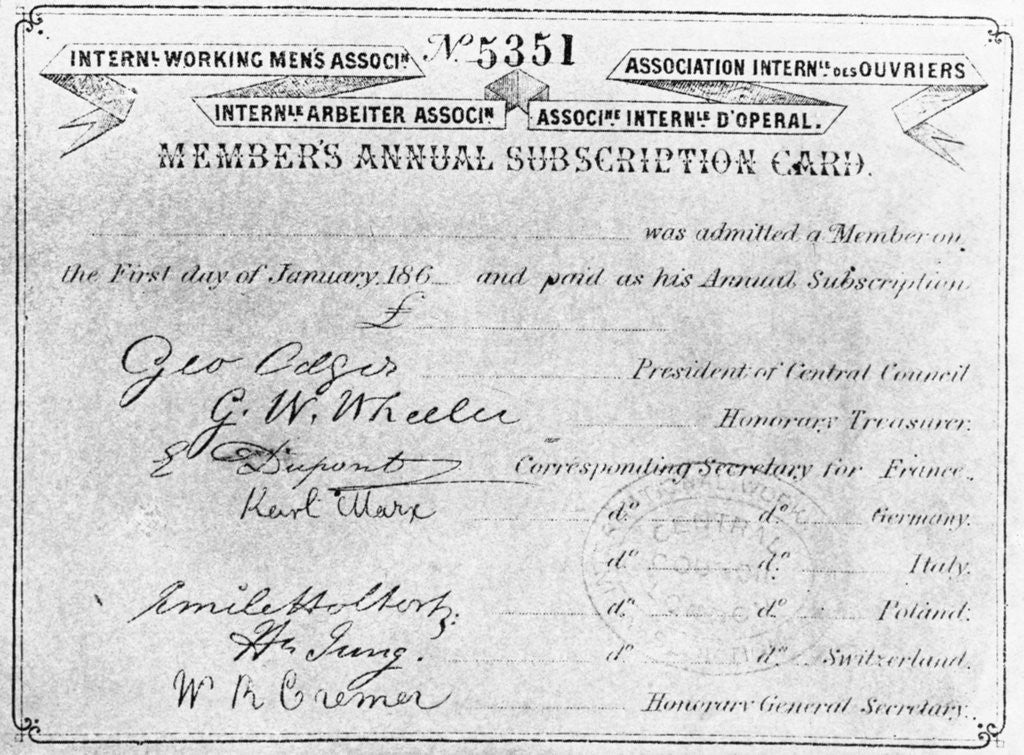 Nº 5351
INTERNL WORKING MEN'S ASSOCIN
ASSOCIATION INTERNLE DES OUVRIERS
INTERNLE ARBEITER ASSOCIN
ASSOCINE INTERNLE D'OPERAI.
MEMBER'S ANNUAL SUBSCRIPTION CARD.
was admitted a Member on
the First day of January 186 and paid as his Annual Subscription
£
Geo Odger President of Central Council
G. W. Wheeler Honorary Treasurer.
E Dupont Corresponding Secretary for France.
Karl Marx dº dº Germany.
dº dº Italy.
Emile Holtorp. dº dº Poland.
Hn Jung. dº dº Switzerland.
W R Cremer Honorary General Secretary.
CENTRAL